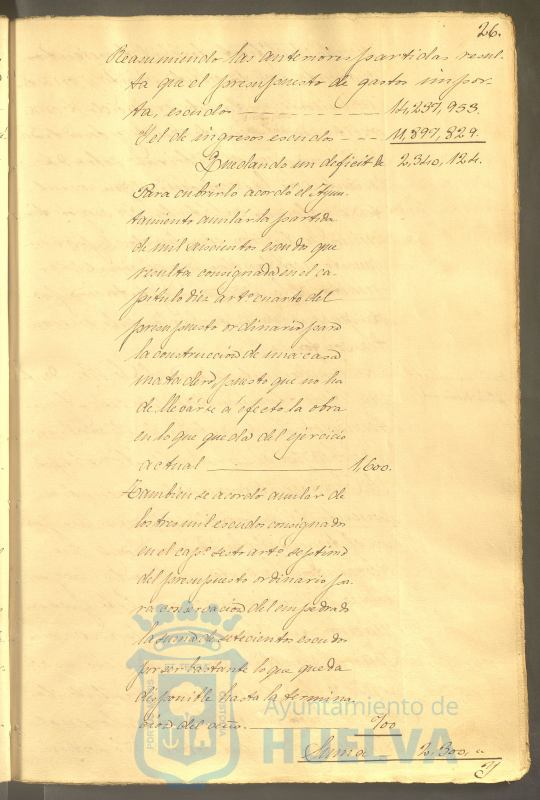 26.
Reasumiendo las anteriores partidas resul-
ta que el presupuesto de gastos impor-
ta, escudos 14,237,953.
Y el de ingresos escudos 11,897,829.
Quedando un deficit de 2,340,124.
Para cubrirlo acordó el Ayun-
tamiento anulár la partida
de mil seiscientos escudos que
resulta consignada en el ca-
pítulo diez artº cuarto del
presupuesto ordinario para
la construccion de una casa
matadero, puesto que no ha
de lleváse á efecto la obra
en lo que queda del ejercicio
actual 1,600.
Tambien se acordó anulár de
los tres mil escudos consignados
en el capº sesto artº septimo
del presupuesto ordinario pa-
ra conservacion del empedrado
la suma de setecientos escudos
por ser bastante lo que queda
disponible hasta la termina-
cion del año. 700
Suma 2,300,"
Ayuntamiento de
HUELVA